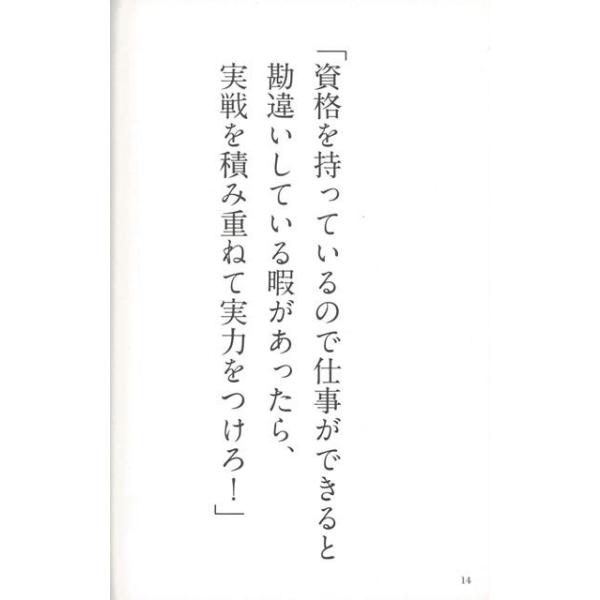 「資格を持っているので仕事ができると
勘違いしている暇があったら、
実戦を積み重ねて実力をつけろ！」
14